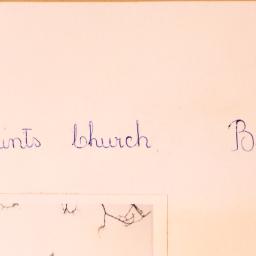 ints Church B